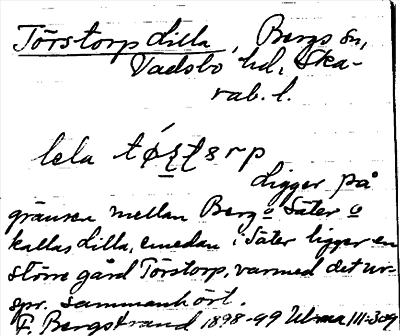 Törstorp lilla, Bergs sn,
Vadsbo hd, Ska-
rab. l.
lela
Ligger på
gränsen mellan Berg o Säter o
kallas lilla, emedan i Säter ligger en
större gård Törstorp, varmed det ur-
spr. sammanhört.
F. Bergstrand 1898-99 Ul:ma III:309